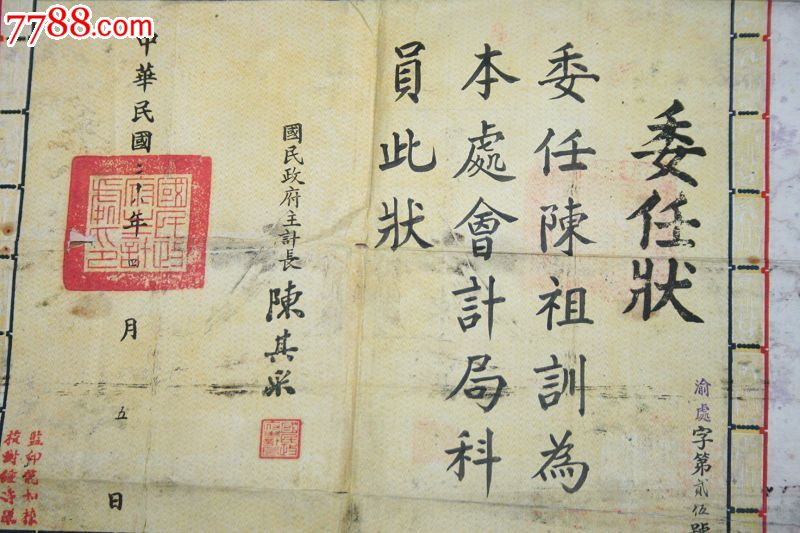 7788.com
委任狀
渝處字第貳伍號
委任陳祖訓為
本處會計局科
員此狀
國民政府主計長 陳其采
中華民國三十年四月五日
國民政府主計處印
監印
校對